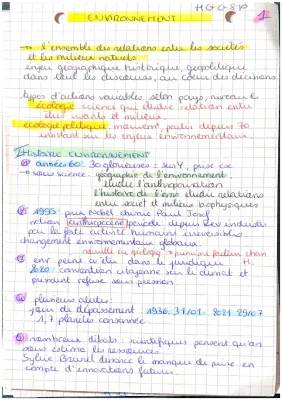 HGGSP
1
ENVIRONNEMENT
→ l'ensemble des relations entre les sociétés
et les milieux naturels
enjeu géographique historique, géopolitique
dans tous les discours, au coeur des décisions
types d'actions variables selon pays, niveau
écologie science qui étudie relation entre
êtres vivants et milieux.
écologie politique: mouvemt, partis depuis 70
insistant sur les enjeux environnementaux
Histoire ENVIRONNEMENT
années 60: 30 glorieuses:
→ sous science: géographie de l'environnement
étudie l'anthropisation
l'histoire de l'env étudie relations
entre société et milieux biophysiques
1995 prix Nobel chimie Paul
notion anthropocène période depuis Rev indust
par la forte activité humaine irréversibles
changement environnementaux globaux
env peint
2020: convention citoyenne sur le climat et
président refuse sous pression.
plusieurs
jour du dépassement: 1986 31/12 2021 29/07
1,7 planètes consommée
nombreux débats: scientifiques pensent qu'on
sous estime les ressources
Sylvie Brunel dénonce le manque de prise en
compte d'innovations futures.